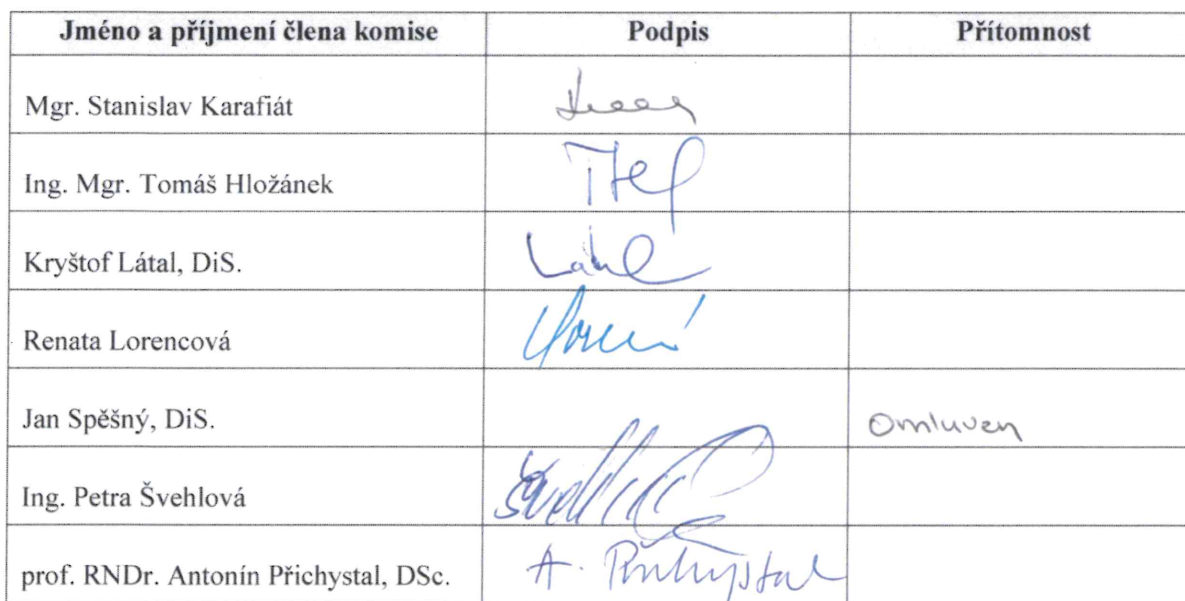 Jméno a příjmení člena komise Podpis Přítomnost
Mgr. Stanislav Karafiát
Ing. Mgr. Tomáš Hložánek
Kryštof Látal, DiS.
Renata Lorencová
Jan Spěšný, DiS. Omluven
Ing. Petra Švehlová
prof. RNDr. Antonín Přichystal, DSc. A. Přichystal